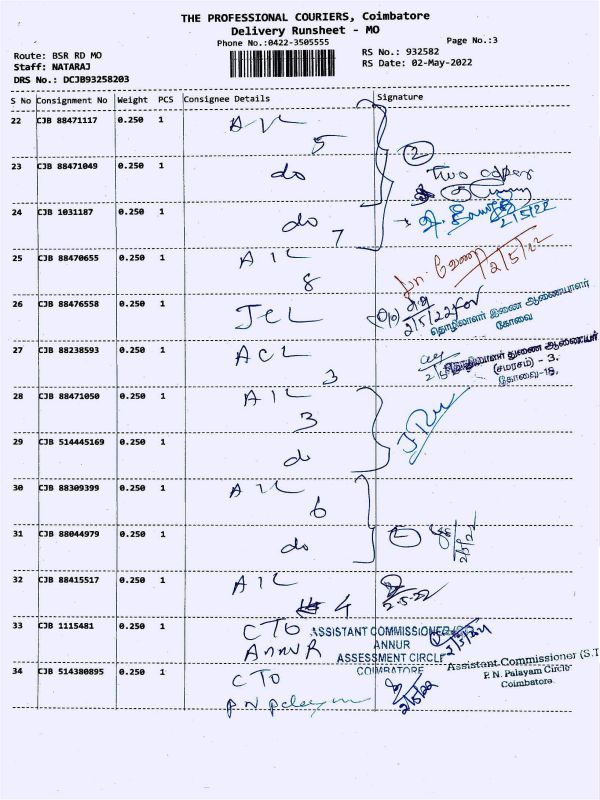 THE PROFESSIONAL COURIERS, Coimbatore
Delivery Runsheet - MO
Phone No.:0422-3505555
Page No.:3
Route: BSR RD MO
RS No.: 932582
Staff: NATARAJ
RS Date: 02-May-2022
DRS No.: DCJB93258203
S No Consignment No Weight PCS Consignee Details Signature
22 CJB 88471117 0.250 1
5
2
23 CJB 88471049 0.250 1 do
Two
24 CJB 1031187 0.250 1 do
7
2/5/22
25 CJB 88470655 0.250 1 AIL
8
2/5/22
26 CJB 88476558 0.250 1 JCL
2/5/22 for
தொழிலாளர் இணை ஆணையாளர்
கோவை
27 CJB 88238593 0.250 1 ACL
3
துணை ஆணையர்
(சமரசம்) - 3.
கோவை-18.
28 CJB 88471050 0.250 1 AIL
3
29 CJB 514445169 0.250 1 do
30 CJB 88309399 0.250 1 AIL
6
31 CJB 88044979 0.250 1 do
2/5/22
32 CJB 88415517 0.250 1 AIL
4
2-5-22
33 CJB 1115481 0.250 1 CTO
ANNUR
ASSISTANT COMMISSIONER
ANNUR
ASSESSMENT CIRCLE
COIMBATORE
34 CJB 514380895 0.250 1 CTO
P N Palayam
2/5/22
Assistant Commissioner (S.T
P. N. Palayam Circle
Coimbatore